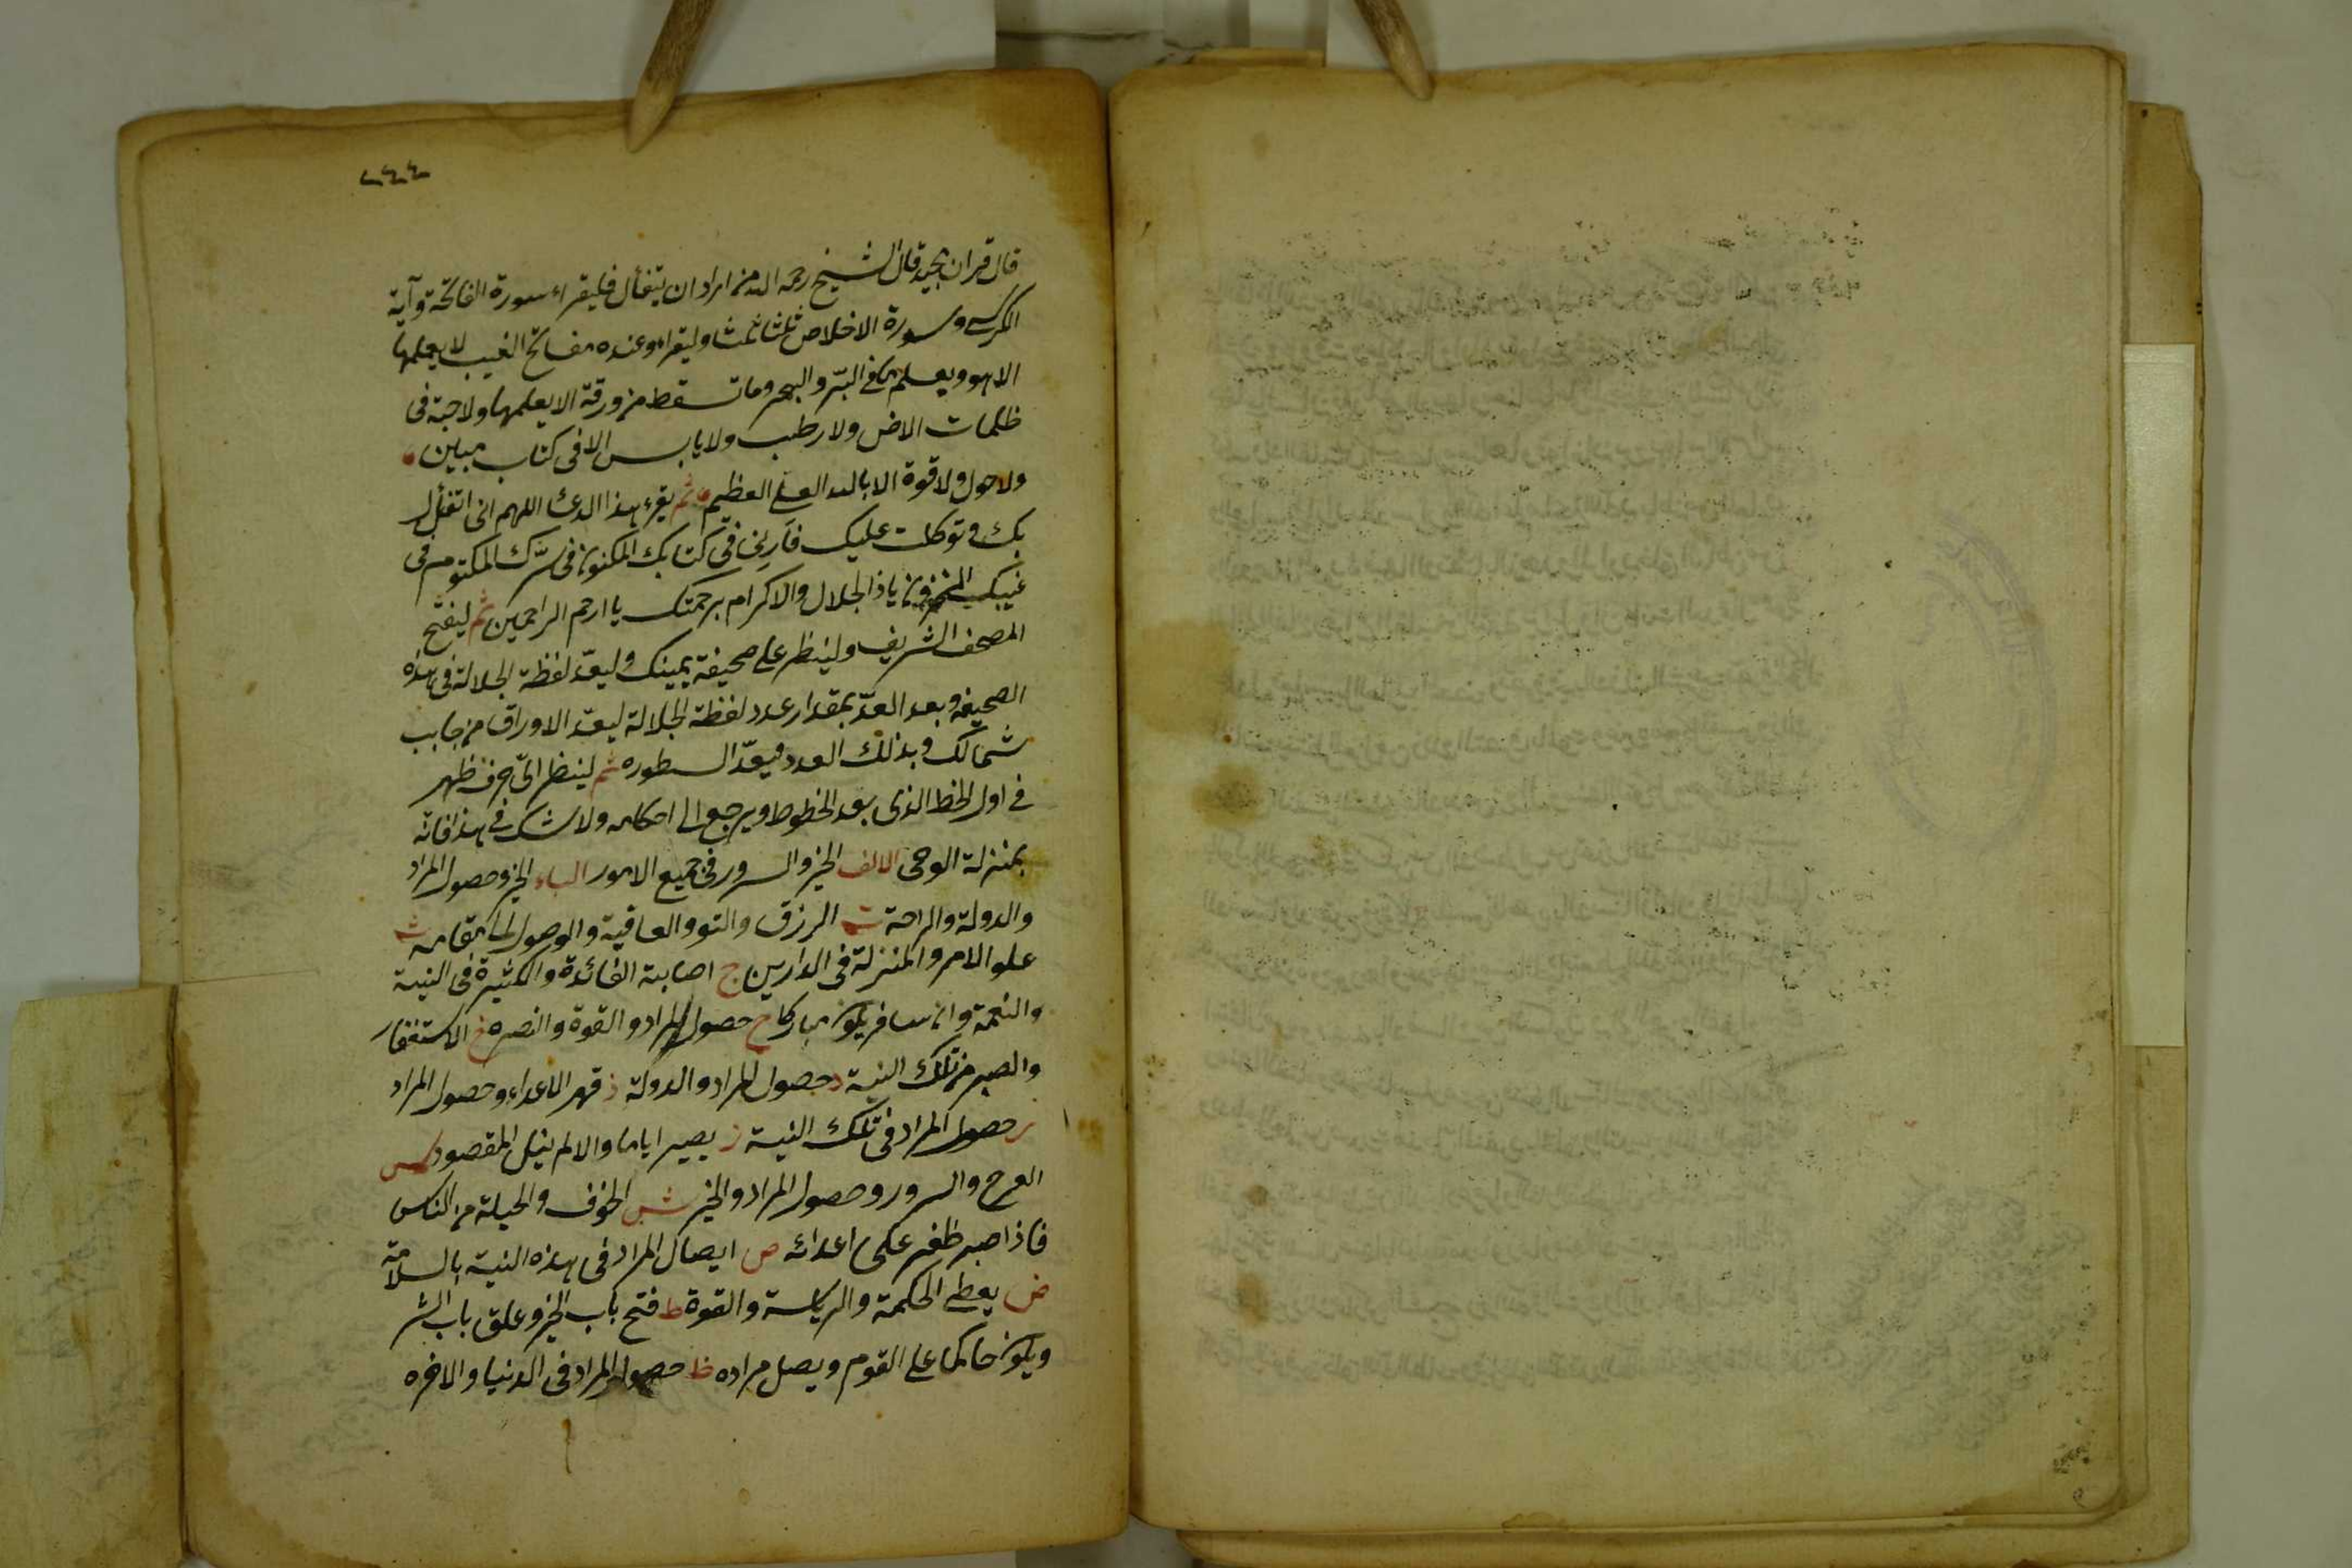 ٢٤٤
قال قران مجيد قال الشيخ رحمه الله من اراد ان يتفأل فليقراء سورة الفاتحة وآية
الكرسي وسورة الاخلاص ثلثا ثلثا وليقراء وعنده مفاتح الغيب لا يعلمها
الا هو ويعلم ما في البرّ والبحر وما تسقط من ورقة الا يعلمها ولا حبة فى
ظلمات الاض ولا رطب ولا يابس الا فى كتاب مبين
ولا حول ولا قوة الا بالله العلي العظيم ثم يقرء هذا الدعا اللهم انى اتفأل
بك و توكلت عليك فأرني فى كتابك المكنون فى سرّك المكتوم فى
غيبك المخزون يا ذا الجلال والاكرام برحمتك يا ارحم الراحمين ثم ليفتح
المصحف الشريف ولينظر على صحيفة يمينك وليعدّ لفظة الجلالة فى هذه
الصحيفة وبعد العدّ بمقدار عدد لفظة الجلالة ليعدّ الاوراق من جانب
شمالك وبذلك العدد ليعدّ السطوره ثم لينظر الىّ حرف ظهر
في اول الخط الذى بعد الخطوط ويرجع الى احكامه ولا شك في هذا فانه
بمنزلة الوحى الالف الخير والسرور فى جميع الامور الباء الخير وحصول المراد
والدولة والراحة ت الرزق والتو والعافية والوصول الى مقامه ث
علو الامر والمنزلة فى الدارين ج اصابة الفائدة والكثيرة فى النية
والنعمة وان سافر يكون مباركا ح حصول المراد والقوة والنصره خ الاستغفار
والصبر من تلك النية د حصول المراد والدولة ذ قهر الاعداء وحصول المراد
ر حصول المراد فى تلك النية ز يصبر اياما والا لم ينل المقصود س
الفرح والسرور وحصول المراد والخير ش الخوف والحيلة من الناس
فاذا صبر ظفر على اعدائه ص ايصال المراد فى هذه النية بالسلامة
ض يعطى الحكمة والرياسة والقوة ط فتح باب الخير وغلق باب الشر
ويكون حاكما على القوم ويصل مراده ظ حصول المراد فى الدنيا والاخره